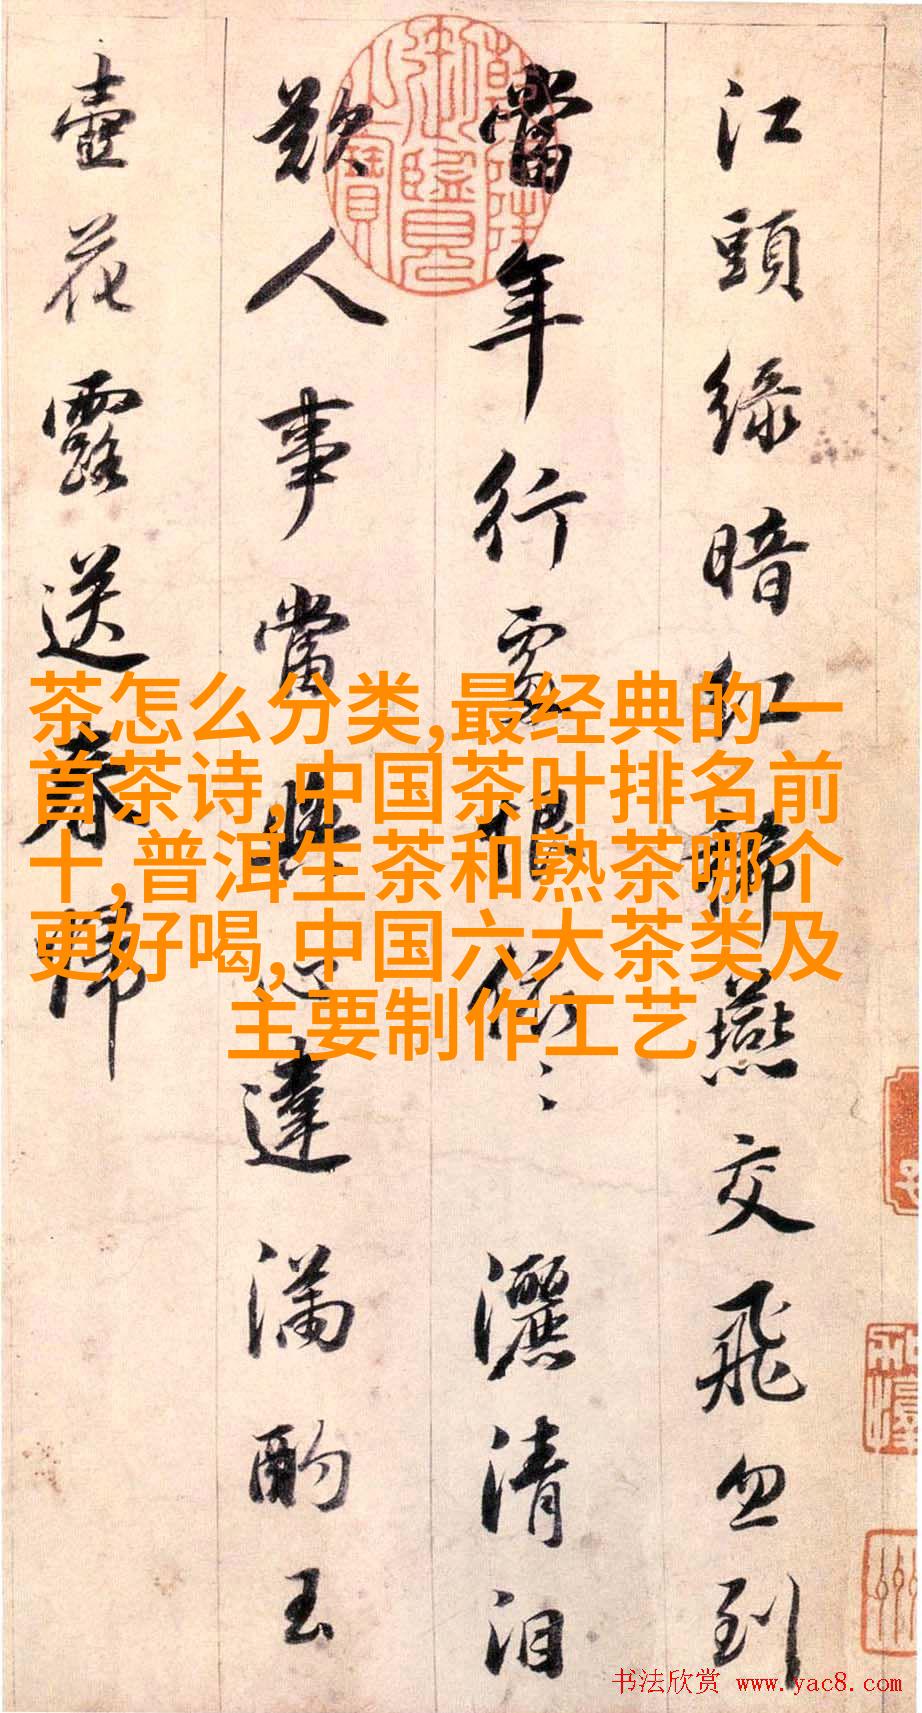 江頭綠暗紅稀燕交飛忽到
當年行處恨依〻灑清泪
歎人事與心違滿酌玉
壺花露送春歸
乾隆御覽之寶
茶怎么分类,最经典的一
首茶诗,中国茶叶排名前
十,普洱生茶和熟茶哪个
更好喝,中国六大茶类及
主要制作工艺
书法欣赏 www.yac8.com